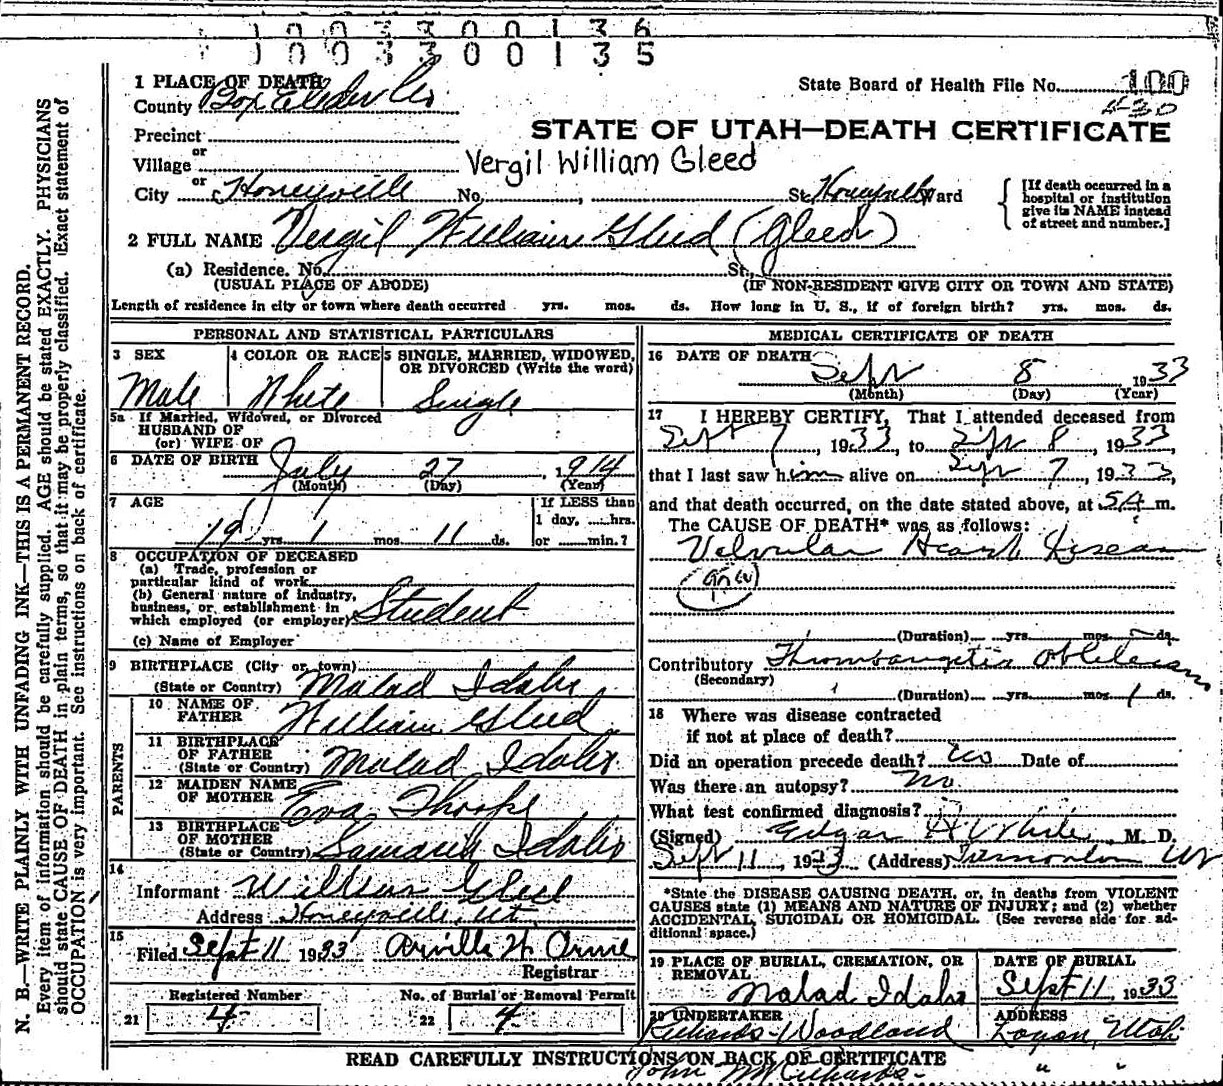 1003300136
1003300135
1 PLACE OF DEATH
County Box Elder Co
State Board of Health File No. 100
430
Precinct
STATE OF UTAH—DEATH CERTIFICATE
or
Village
Vergil William Gleed
or
City Honeyville No. , St. Honeyville Ward
[If death occurred in a hospital or institution give its NAME instead of street and number.]
2 FULL NAME Vergil William Gleed (Gleed)
(a) Residence. No. St.,
(USUAL PLACE OF ABODE) (IF NON-RESIDENT GIVE CITY OR TOWN AND STATE)
Length of residence in city or town where death occurred yrs. mos. ds. How long in U. S., if of foreign birth? yrs. mos. ds.
PERSONAL AND STATISTICAL PARTICULARS
3 SEX 4 COLOR OR RACE 5 SINGLE, MARRIED, WIDOWED,
OR DIVORCED (Write the word)
Male White Single
5a If Married, Widowed, or Divorced
HUSBAND OF
(or) WIFE OF
6 DATE OF BIRTH July 27, 1914
(Month) (Day) (Year)
7 AGE If LESS than
19 yrs. 1 mos. 11 ds. 1 day, ....hrs.
or ....min.?
8 OCCUPATION OF DECEASED
(a) Trade, profession or
particular kind of work
(b) General nature of industry,
business, or establishment in
which employed (or employer) Student
(c) Name of Employer
9 BIRTHPLACE (City or town)
(State or Country) Malad Idaho
PARENTS
10 NAME OF
FATHER William Gleed
11 BIRTHPLACE
OF FATHER
(State or Country) Malad Idaho
12 MAIDEN NAME
OF MOTHER Eva Thorpe
13 BIRTHPLACE
OF MOTHER
(State or Country) Samaria Idaho
14
Informant William Gleed
Address Honeyville, Ut.
15
Filed Sept 11 1933 Arvilla H. Orme
Registrar
Registered Number No. of Burial or Removal Permit
21 4 22 4
MEDICAL CERTIFICATE OF DEATH
16 DATE OF DEATH
Sept 8 1933
(Month) (Day) (Year)
17 I HEREBY CERTIFY, That I attended deceased from
Sept 7, 1933, to Sept 8, 1933
that I last saw him alive on Sept 7, 1933,
and that death occurred, on the date stated above, at 5A m.
The CAUSE OF DEATH* was as follows:
Valvular Heart Disease
(Duration) yrs. mos. ds.
Contributory Thromboangitis Obliterans
(Secondary)
(Duration) yrs. mos. 1 ds.
18 Where was disease contracted
if not at place of death?
Did an operation precede death? no Date of
Was there an autopsy? no
What test confirmed diagnosis?
(Signed) Edgar H White, M. D.
Sept 11, 1933 (Address) Tremonton Ut
*State the DISEASE CAUSING DEATH, or, in deaths from VIOLENT
CAUSES state (1) MEANS AND NATURE OF INJURY; and (2) whether
ACCIDENTAL, SUICIDAL OR HOMICIDAL. (See reverse side for ad-
ditional space.)
19 PLACE OF BURIAL, CREMATION, OR
REMOVAL
Malad Idaho
DATE OF BURIAL
Sept 11, 1933
20 UNDERTAKER
Richards-Woodland
ADDRESS
Logan, Utah
READ CAREFULLY INSTRUCTIONS ON BACK OF CERTIFICATE
John M Richards - " "
N. B.—WRITE PLAINLY WITH UNFADING INK—THIS IS A PERMANENT RECORD.
Every item of information should be carefully supplied. AGE should be stated EXACTLY. PHYSICIANS
should state CAUSE OF DEATH in plain terms, so that it may be properly classified. Exact statement of
OCCUPATION is very important. See instructions on back of certificate.